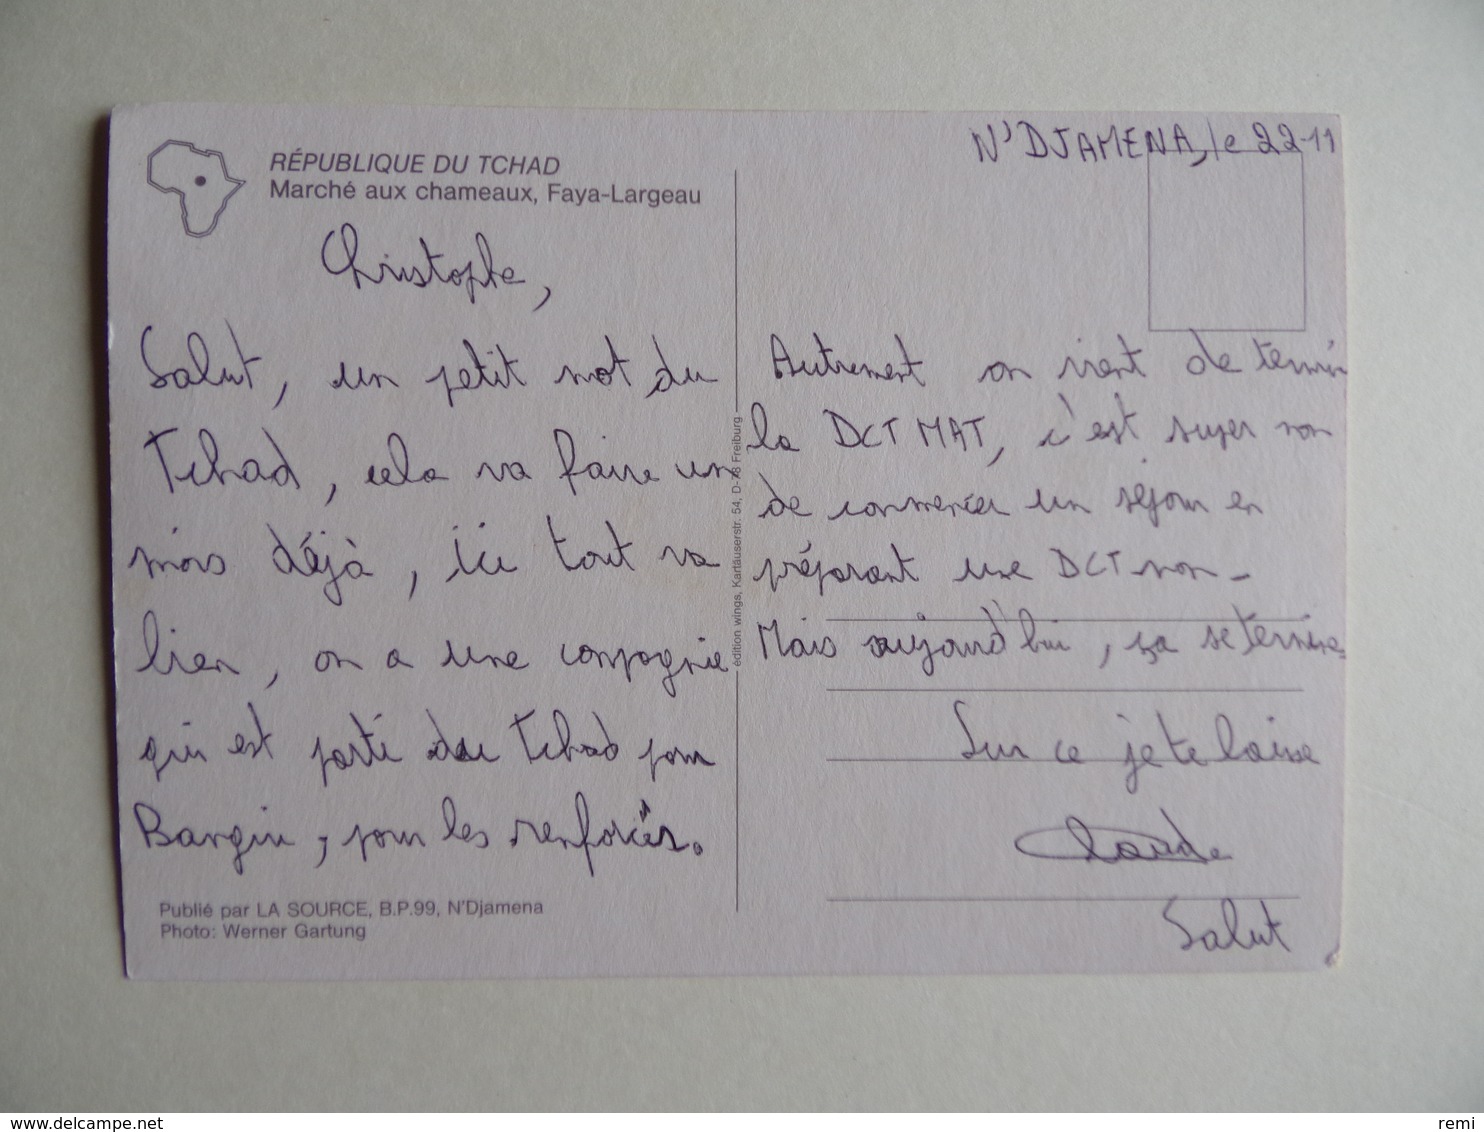 N'DJAMENA, le 22-11
RÉPUBLIQUE DU TCHAD
Marché aux chameaux, Faya-Largeau
Christophe,
Salut, un petit mot du
Tchad, cela va faire un
mois déjà, ici tout va
bien, on a une compagnie
qui est parti du Tchad pour
Bangui, pour les renforcés.
Publié par LA SOURCE, B.P.99, N'Djamena
Photo: Werner Gartung
édition wings, Kartäuserstr. 54, D-78 Freiburg
Autrement on vient de termin
la DCT MAT, c'est super non
de commencer un séjour en
préparant une DCT non-
Mais aujourd'hui, ça se termine
Sur ce je te laisse
Claude
Salut
delcampe.net
remi